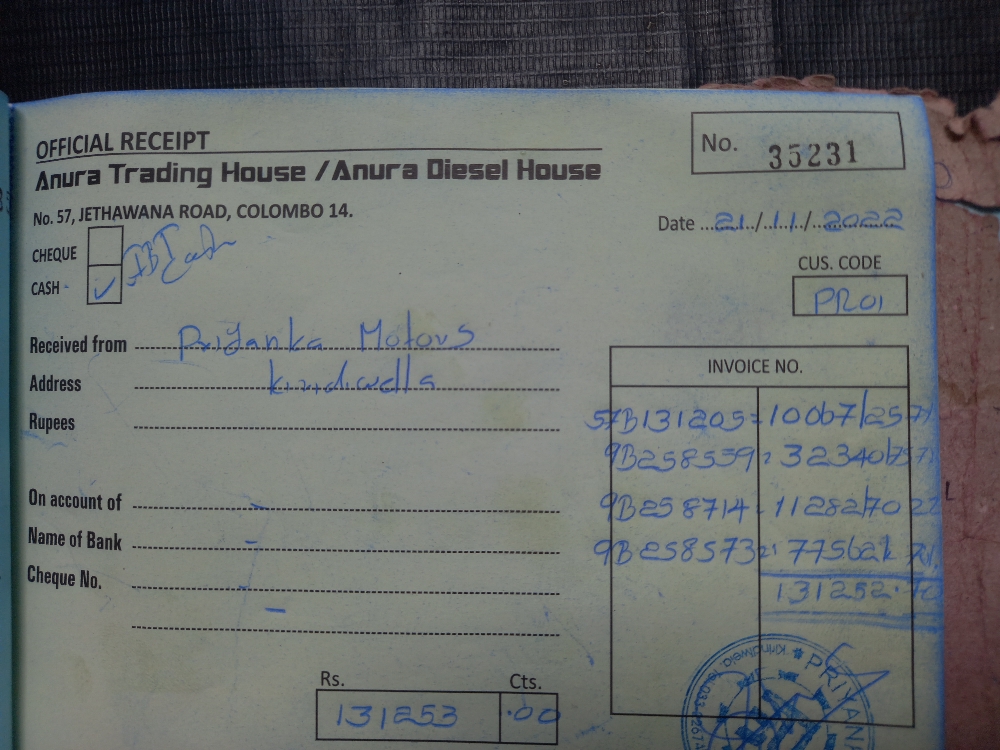 OFFICIAL RECEIPT
No. 35231
Anura Trading House / Anura Diesel House
No. 57, JETHAWANA ROAD, COLOMBO 14.
Date 21/11/2022
CHEQUE
CASH ✓
CUS. CODE
PR01
Received from Priyanka Motors
Address kirindiwella
Rupees
INVOICE NO.
57B131205 = 10067/25
9B258559 = 32340/75
9B258714 = 11282/70
9B258573 =
131252.70
On account of -
Name of Bank -
Cheque No. -
-
Rs. Cts.
131253 .00
Kirindiwela. PRIYAN